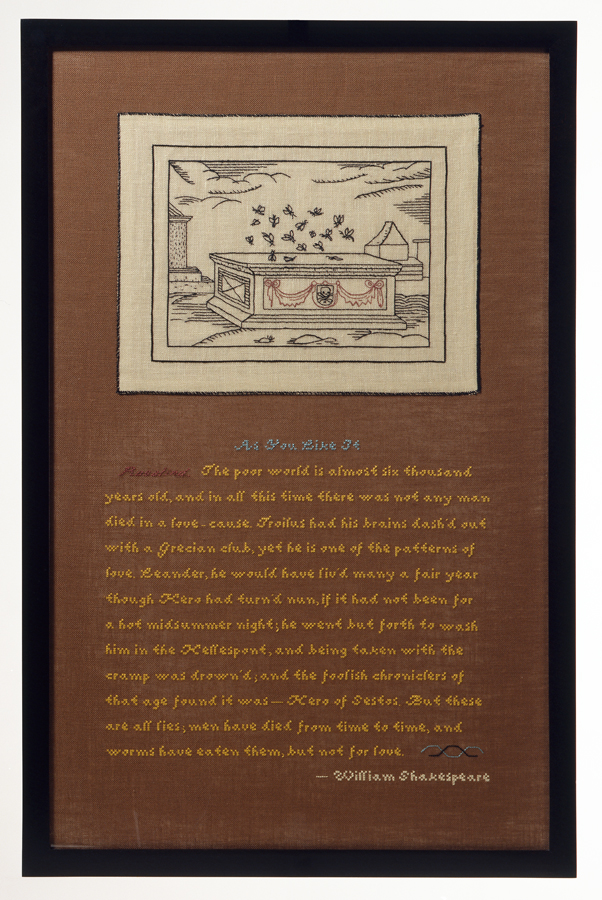 As You Like It
Rosalind The poor world is almost six thousand
years old, and in all this time there was not any man
died in a love-cause. Troilus had his brains dash'd out
with a Grecian club, yet he is one of the patterns of
love. Leander, he would have liv'd many a fair year
though Hero had turn'd nun, if it had not been for
a hot midsummer night; he went but forth to wash
him in the Hellespont, and being taken with the
cramp was drown'd; and the foolish chroniclers of
that age found it was — Hero of Sestos. But these
are all lies; men have died from time to time, and
worms have eaten them, but not for love.
— William Shakespeare